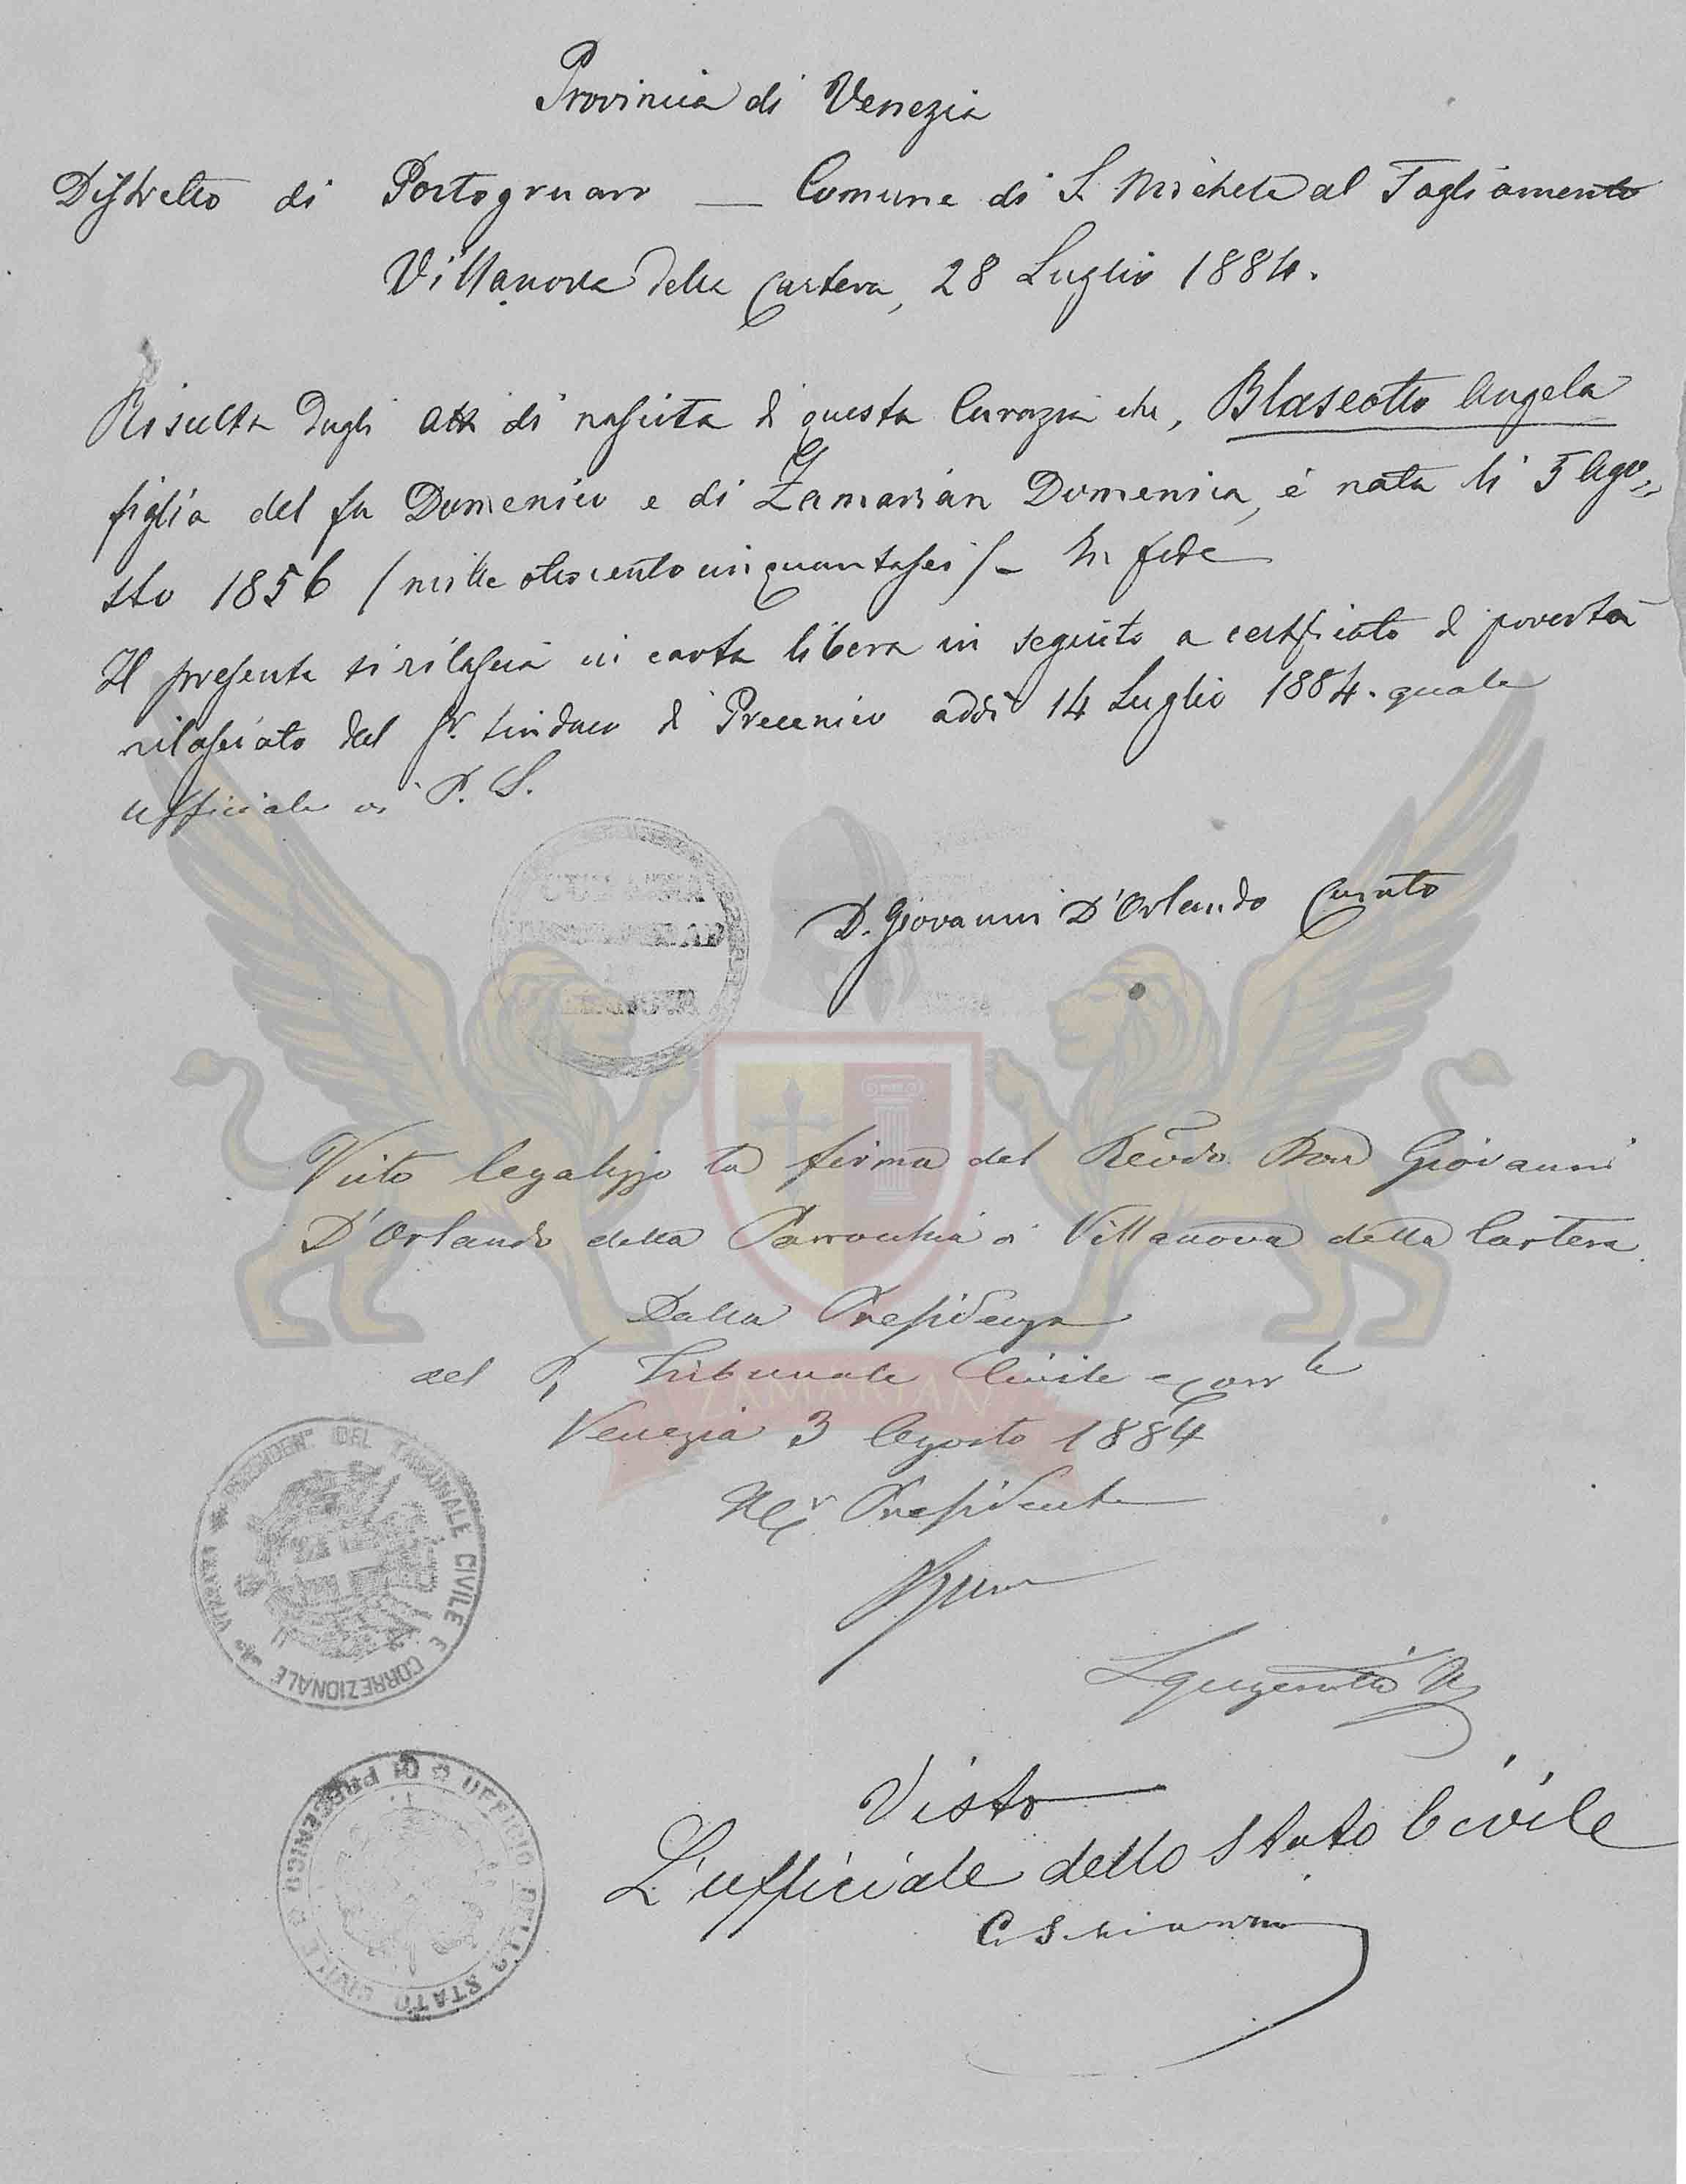 Provincia di Venezia
Distretto di Portogruaro — Comune di S. Michele al Tagliamento
Villanova della Cartera, 28 Luglio 1884.
Risulta dagli atti di nascita di questa Curazia che, Blaseotto Angela
figlia del fu Domenico e di Zamarian Domenica, è nata li 5 Ago=
sto 1856 / mille ottocento cinquantasei / – In fede
Il presente si rilascia in carta libera in seguito a certificato di povertà
rilasciato dal Sr. Sindaco di Precenico addì 14 Luglio 1884. quale
ufficiale di P. S.
D. Giovanni D'Orlando Curato
Visto legalizzo la firma del Revdo. Don Giovanni
D'Orlando della Parrocchia di Villanova della Cartera.
Dalla Presidenza
del R. Tribunale Civile e Corrle
ZAMARIAN
Venezia 3 Agosto 1884
Presidente
PRESIDEN. DEL TRIBUNALE CIVILE E CORREZIONALE
Visto
L'ufficiale dello Stato Civile
UFFICIO DELLO STATO CIVILE DI PRECENICO